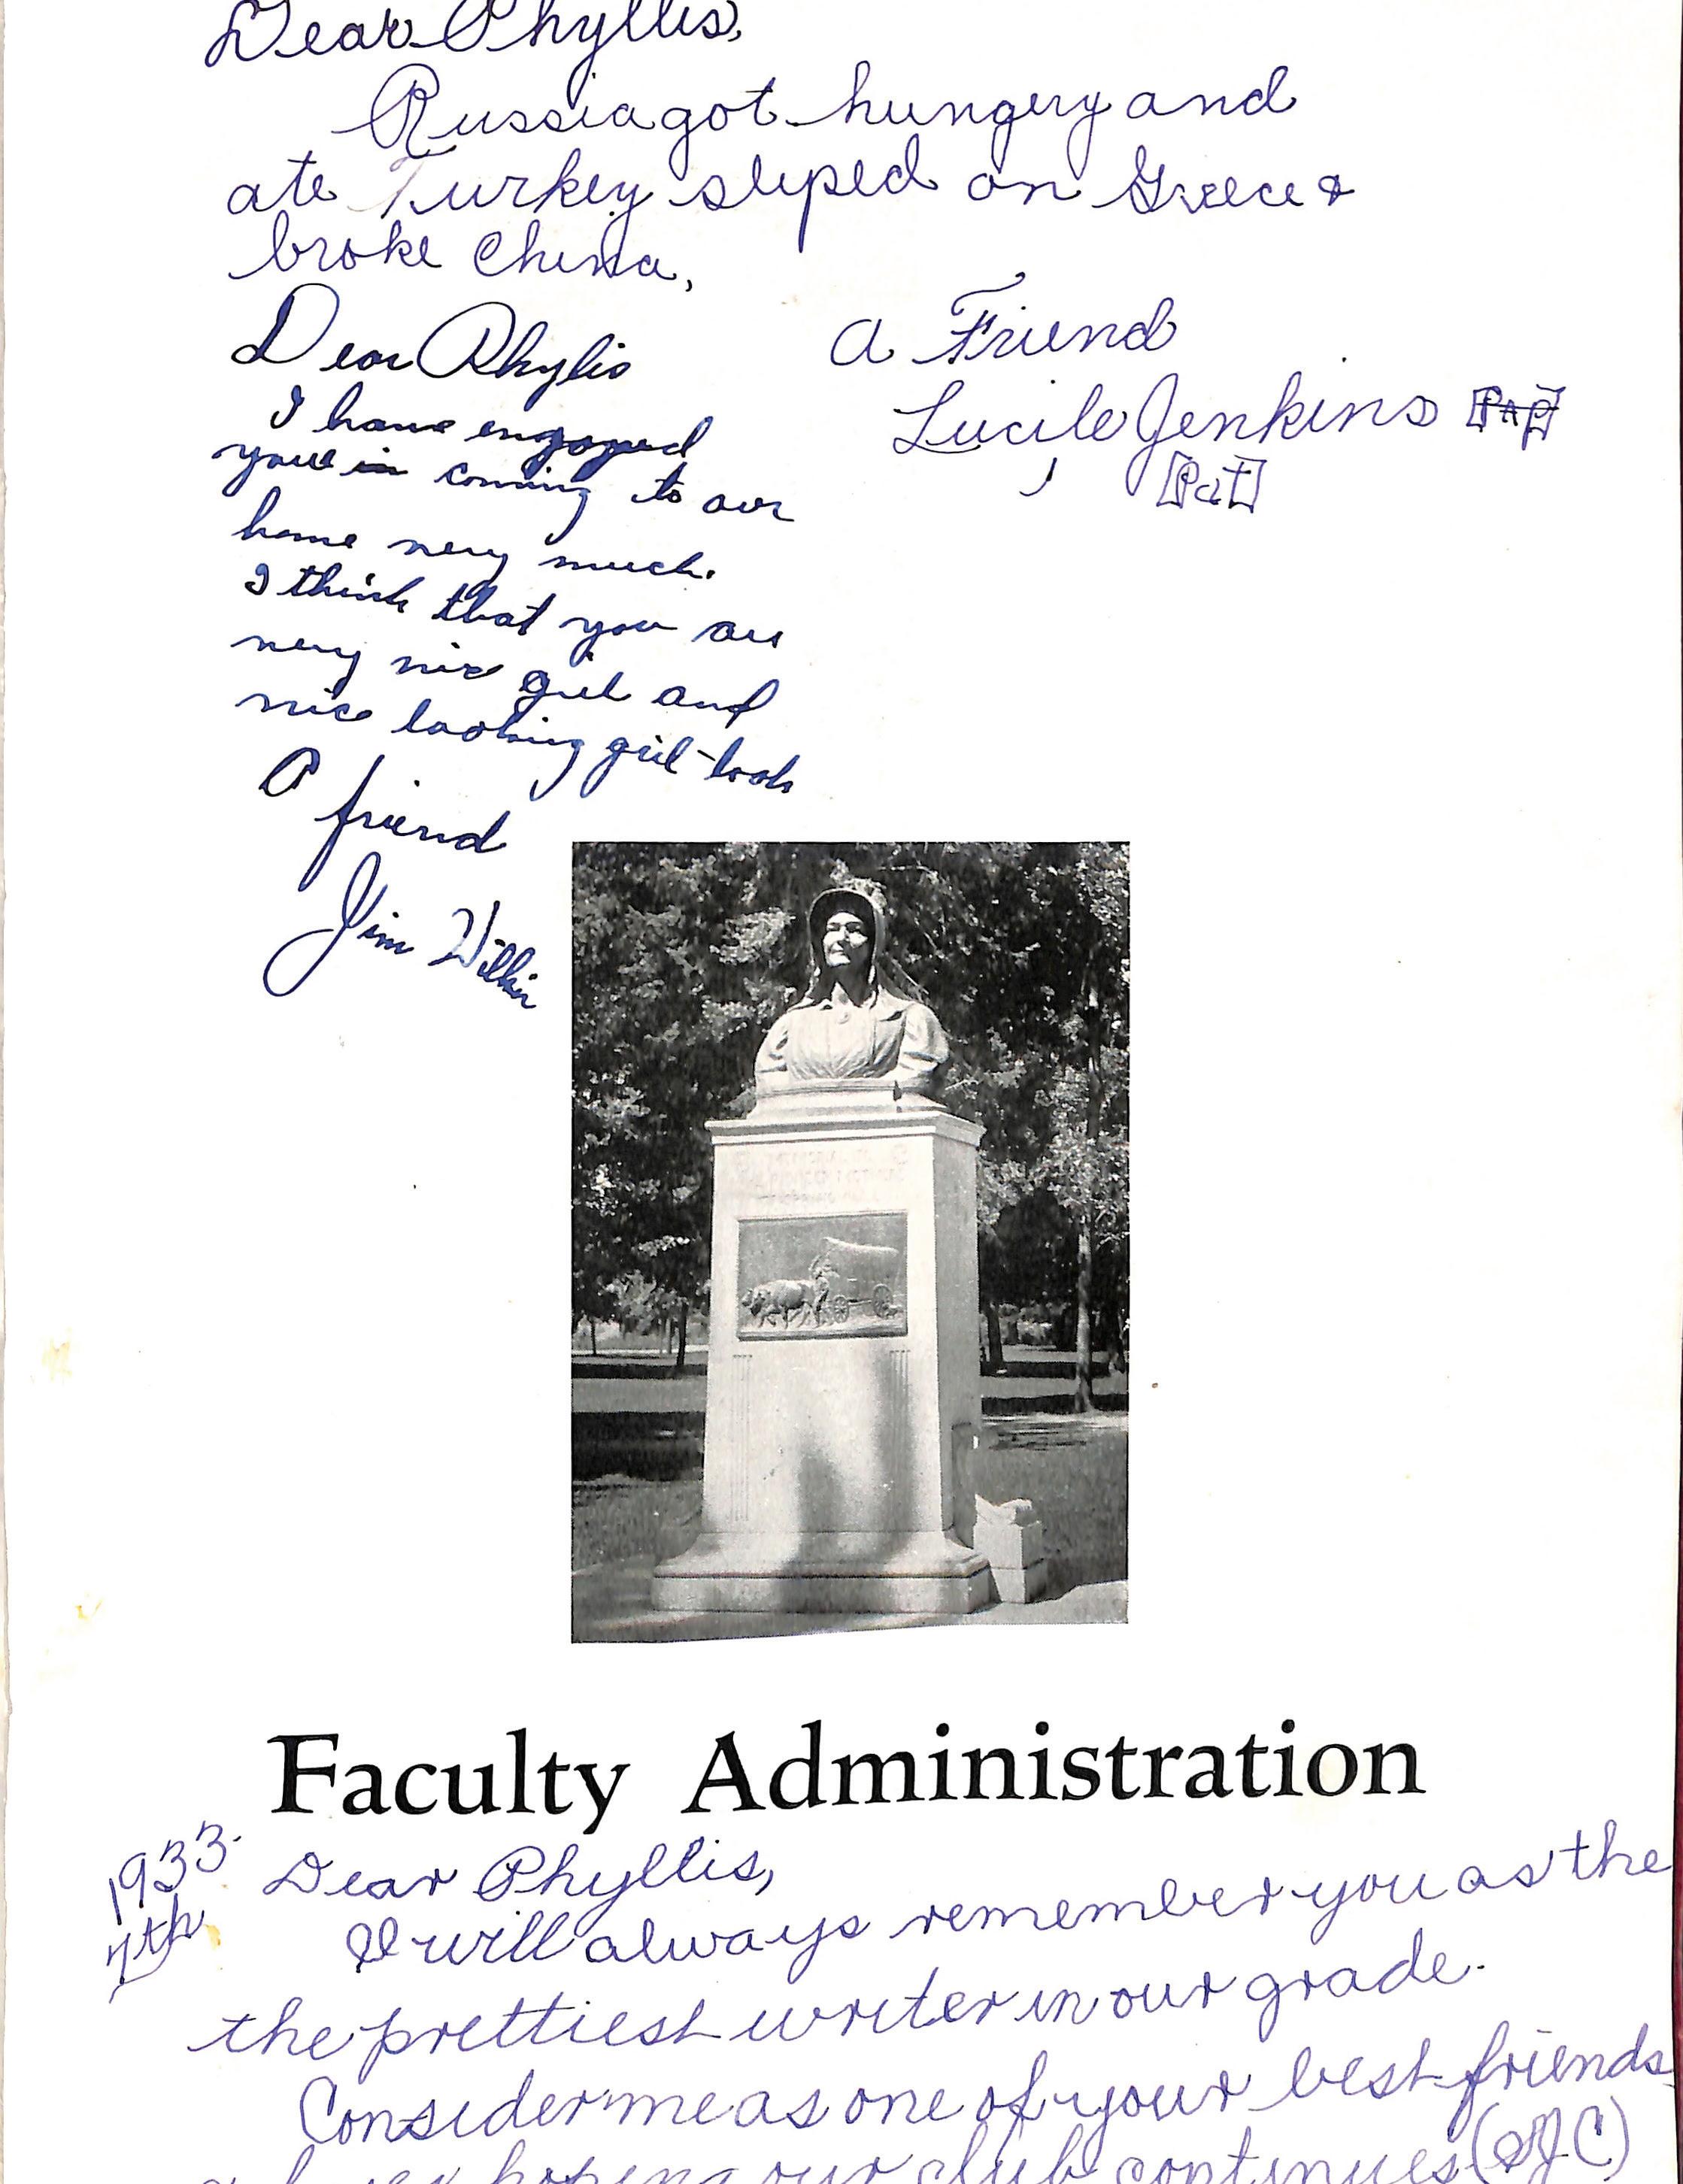 Dear Phyllis,
Russia got hungry and
ate Turkey sliped on Greece &
broke China,
A Friend
Lucile Jenkins
[Pat]
Dear Phylis
I have engoyed
your in coming to our
home very much.
I think that you are
very nice girl and
nice looking girl look
A friend
Jim Wilkin
Faculty Administration
1933
7th
Dear Phyllis,
I will always remember you as the
the prettiest writer in our grade.
Consider me as one of your best friends
hoping our club continues (S.J.C)